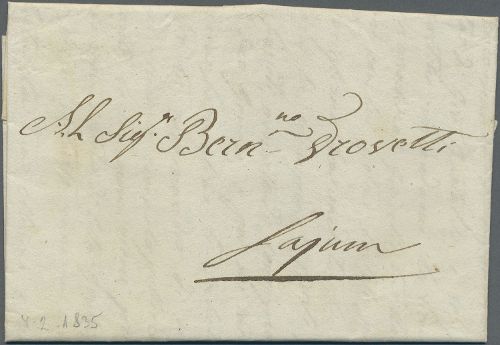 Al Sig.r Bern.no Drovetti
Fajum
4-2-1835